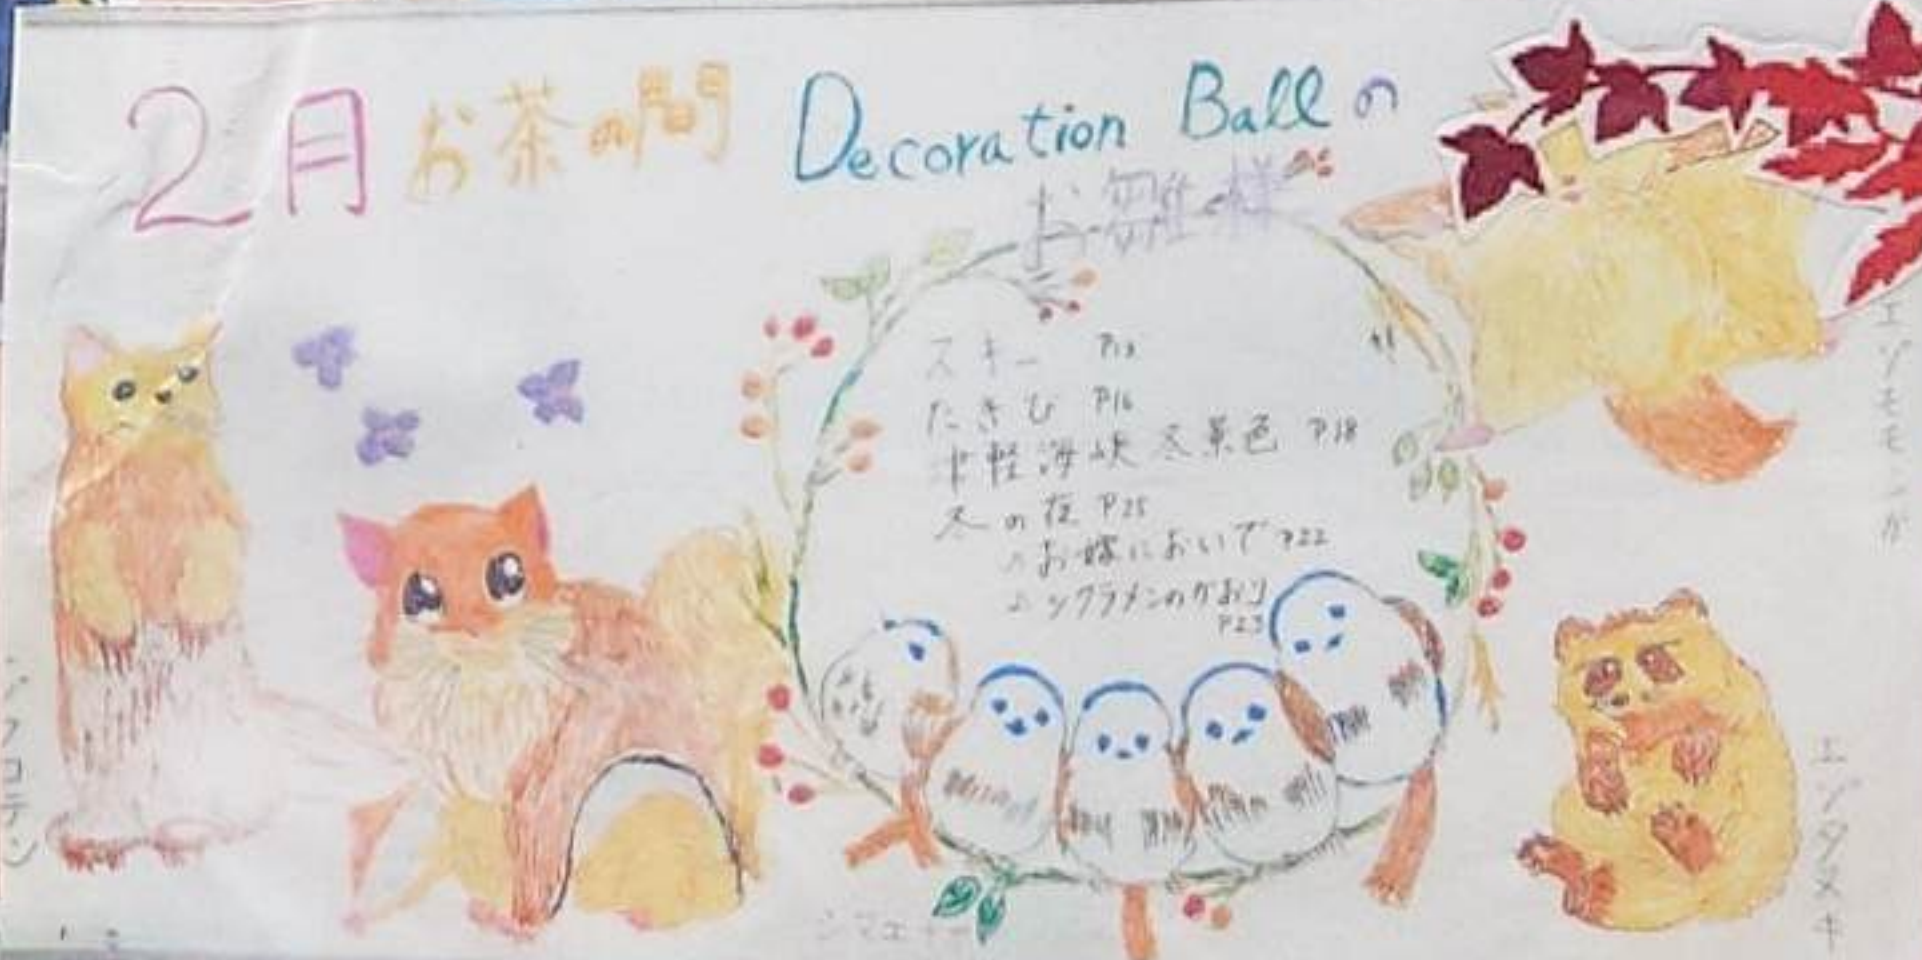 2月 お茶の間 Decoration Ballの
お雛様
スキー P13
たきび P16
津軽海峡冬景色 P18
冬の夜 P25
お嫁においで P22
シクラメンのかおり
P23
エゾモモンガ
エゾタヌキ
シマエナガ